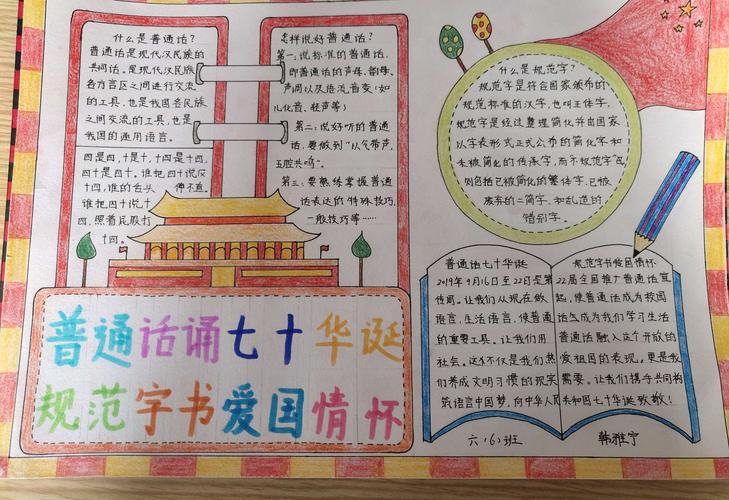 什么是普通话?
普通话是现代汉民族的
共同话。是现代汉民族
各方言区之间进行交流
的工具,也是我国各民族
之间交流的工具,也是
我国的通用语言。
四是四,十是十,十四是十四,
四十是四十。谁把四十说反
十四,谁的舌头 伸不直
谁把四十说十
四,照着屁股打
十四。
怎样说好普通话?
第一:说标准的普通话,
即普通话的声母、韵母、
声调以及语流音变(如
儿化音、轻声等)
第二:说好听的普通
话,要做到“以气带声,
五腔共鸣”。
第三:要熟练掌握普通
话表达的特殊技巧,
一般技巧等……
什么是规范字?
规范字是符合国家颁布的
规范标准的汉字,也叫正体字,
规范字是经过整理简化并由国家
以字表形式正式公布的简化字和
未被简化的传承字,而不规范字
则包括已被简化的繁体字,已被
废弃的二简字,和乱造的
错别字。
普通话诵七十华诞
规范字书爱国情怀
普通话七十华诞
2019年9月16日至22日是第
传周。让我们从现在做
语言,生活语言,使普通
的重要工具。让我们用
社会。这不仅是我们热
们养成文明习惯的现实
筑语言中国梦,向中华人民
规范字书爱国情怀
22届全国推广普通话宣
起,使普通话成为校园
话生成为我们学习生活
普通话融入这个开放的
爱祖国的表现,更是我
需要。让我们携手共同构
共和国七十华诞致敬!
六(6)班
韩雅宁